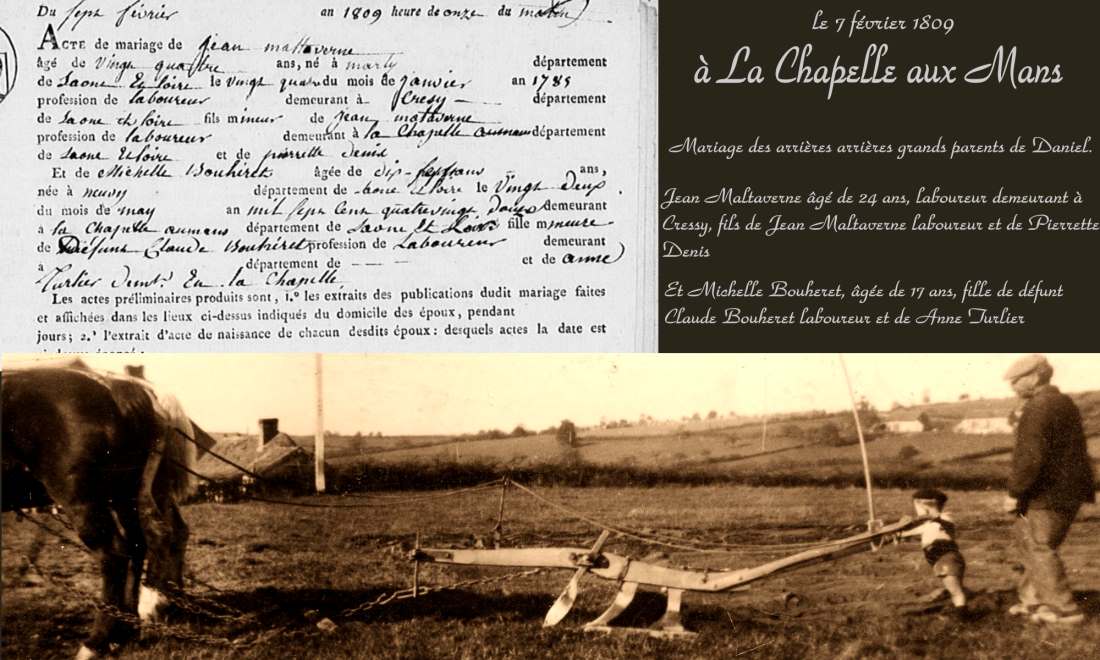 Du sept février an 1809 heure de onze du matin
ACTE de mariage de jean maltaverne
âgé de vingt quatre ans, né à marly département
de Saone et loire le vingt quatre du mois de janvier an 1785
profession de laboureur demeurant à Cressy département
de Saone et loire fils mineur de jean maltaverne
profession de laboureur demeurant à la Chapelle aumans département
de Saone et loire et de pierrette denis
Et de Michelle Bouhéret âgée de dix-sept ans,
née à neuvy département de Saone et loire le vingt deux
du mois de may an mil sept cent quatrevingt douze demeurant
à la Chapelle aumans département de Saone et Loire fille mineure
de Défunt Claude Bouhéret profession de Laboureur demeurant
à département de et de anne
Turlier demt. En la Chapelle
Les actes préliminaires produits sont, 1.º les extraits des publications dudit mariage faites
et affichées dans les lieux ci-dessus indiqués du domicile des époux, pendant
jours; 2.º l'extrait d'acte de naissance de chacun desdits époux: desquels actes la date est
le 7 février 1809
à La Chapelle aux Mans
Mariage des arrières arrières grands parents de Daniel.
Jean Maltaverne âgé de 24 ans, laboureur demeurant à
Cressy, fils de Jean Maltaverne laboureur et de Pierrette
Denis
Et Michelle Bouheret, âgée de 17 ans, fille de défunt
Claude Bouheret laboureur et de Anne Turlier